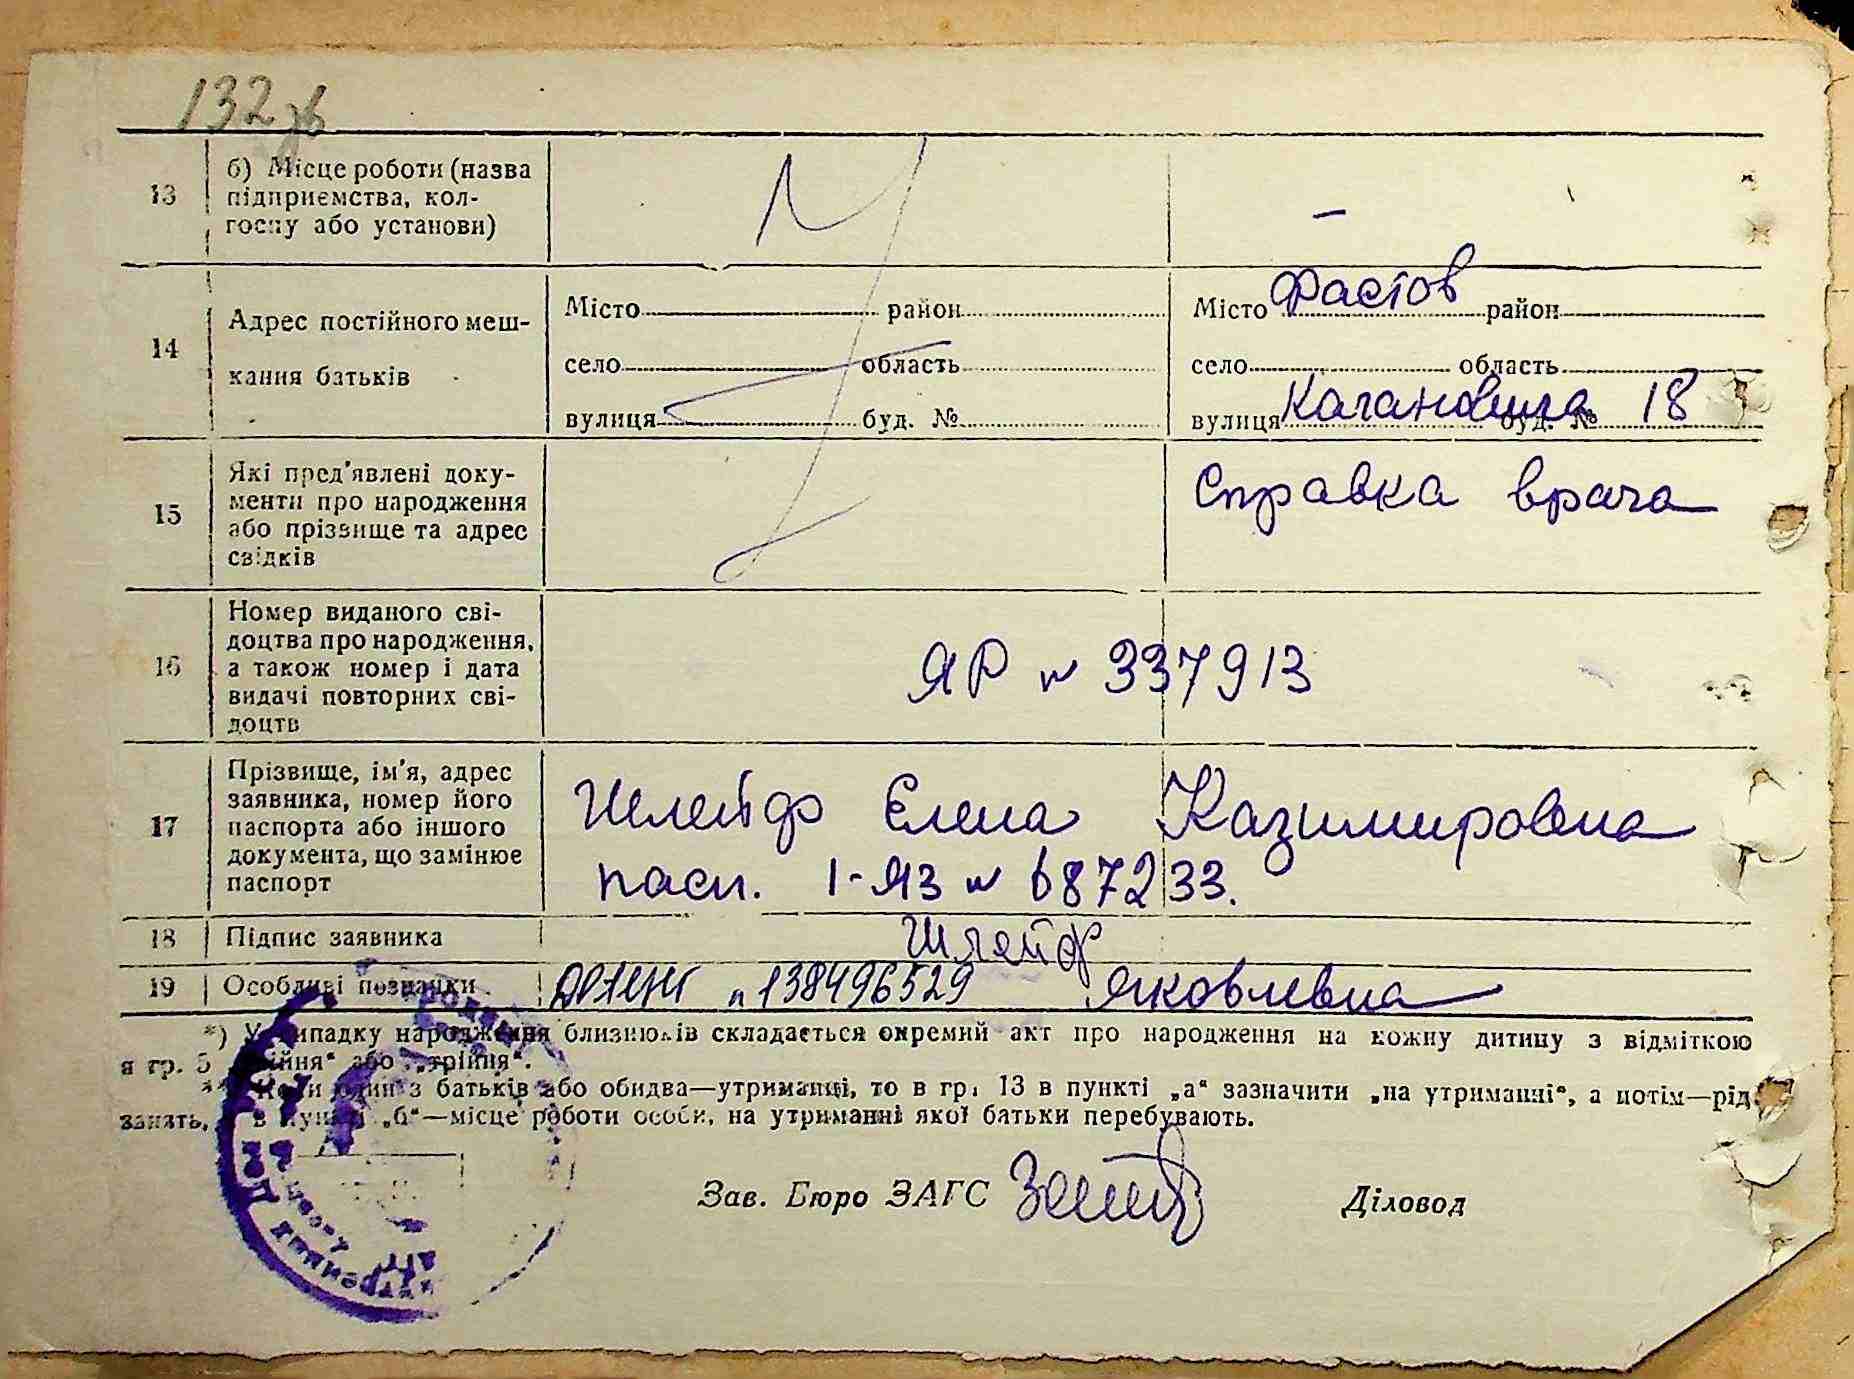 132 зв
13
б) Місце роботи (назва
підприємства, кол-
госпу або установи)
—
14
Адрес постійного меш-
кання батьків
Місто район
село область
вулиця буд. №
Місто Фастов район
село область
вулиця Кагановича буд. № 18
15
Які пред'явлені доку-
менти про народження
або прізвище та адрес
свідків
Справка врача
16
Номер виданого сві-
доцтва про народження,
а також номер і дата
видачі повторних сві-
доцтв
ЯР № 337913
17
Прізвище, ім'я, адрес
заявника, номер його
паспорта або іншого
документа, що замінює
паспорт
Шлейф Елена Казимировна
пасп. I-ЯЗ № 687233.
18
Підпис заявника
Шлейф
19
Особливі позначки
№ 138496529 Яковлевна
*) У випадку народження близнюків складається окремий акт про народження на кожну дитину з відміткою
я гр. 5 „двійня“ або „трійня“.
Коли один з батьків або обидва—утриманці, то в гр. 13 в пункті „а“ зазначити „на утриманні“, а потім—рід
занять, в пункті „б“—місце роботи особи, на утриманні якої батьки перебувають.
Зав. Бюро ЗАГС
Діловод